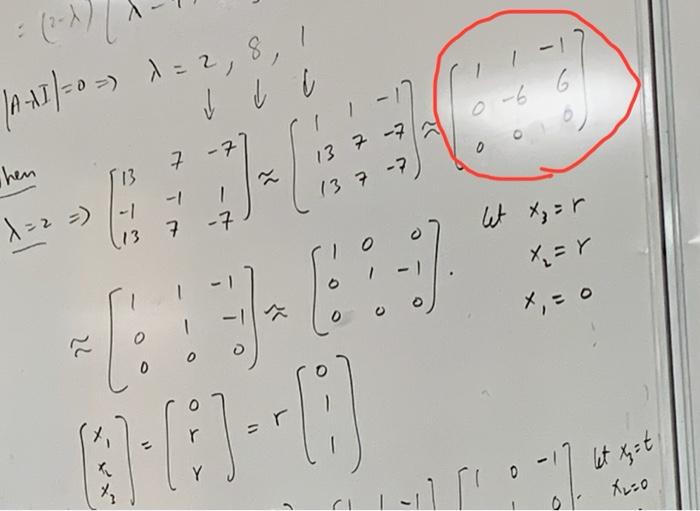 = (2-λ) [ λ-
|A-λI|=0 => λ = 2, 8, 1
↓ ↓ ↓
When λ=2 => [13 7 -7; -1 -1 1; 13 7 -7] ≈ [1 1 -1; 13 7 -7; 13 7 -7] ≈ [1 1 -1; 0 -6 6; 0 0 0]
≈ [1 1 -1; 0 1 -1; 0 0 0] ≈ [1 0 0; 0 1 -1; 0 0 0].
let x₃ = r
x₂ = r
x₁ = 0
[x₁; x₂; x₃] = [0; r; r] = r [0; 1; 1]
[1 1 -1] [1 0 -1].
let x₃=t
x₂=0